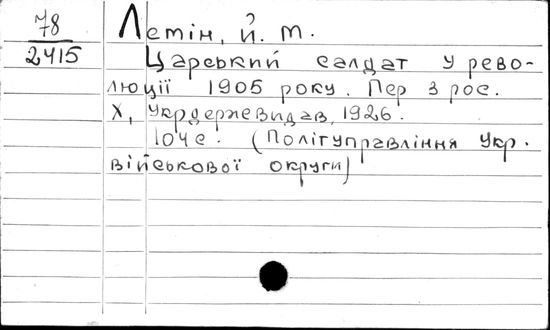 78
2415
Летін, Й. М.
Царський салдат у рево-
люції 1905 року. Пер з рос.
Х, Укрдержвидав, 1926.
104с. (Політуправління Укр.
військової округи)